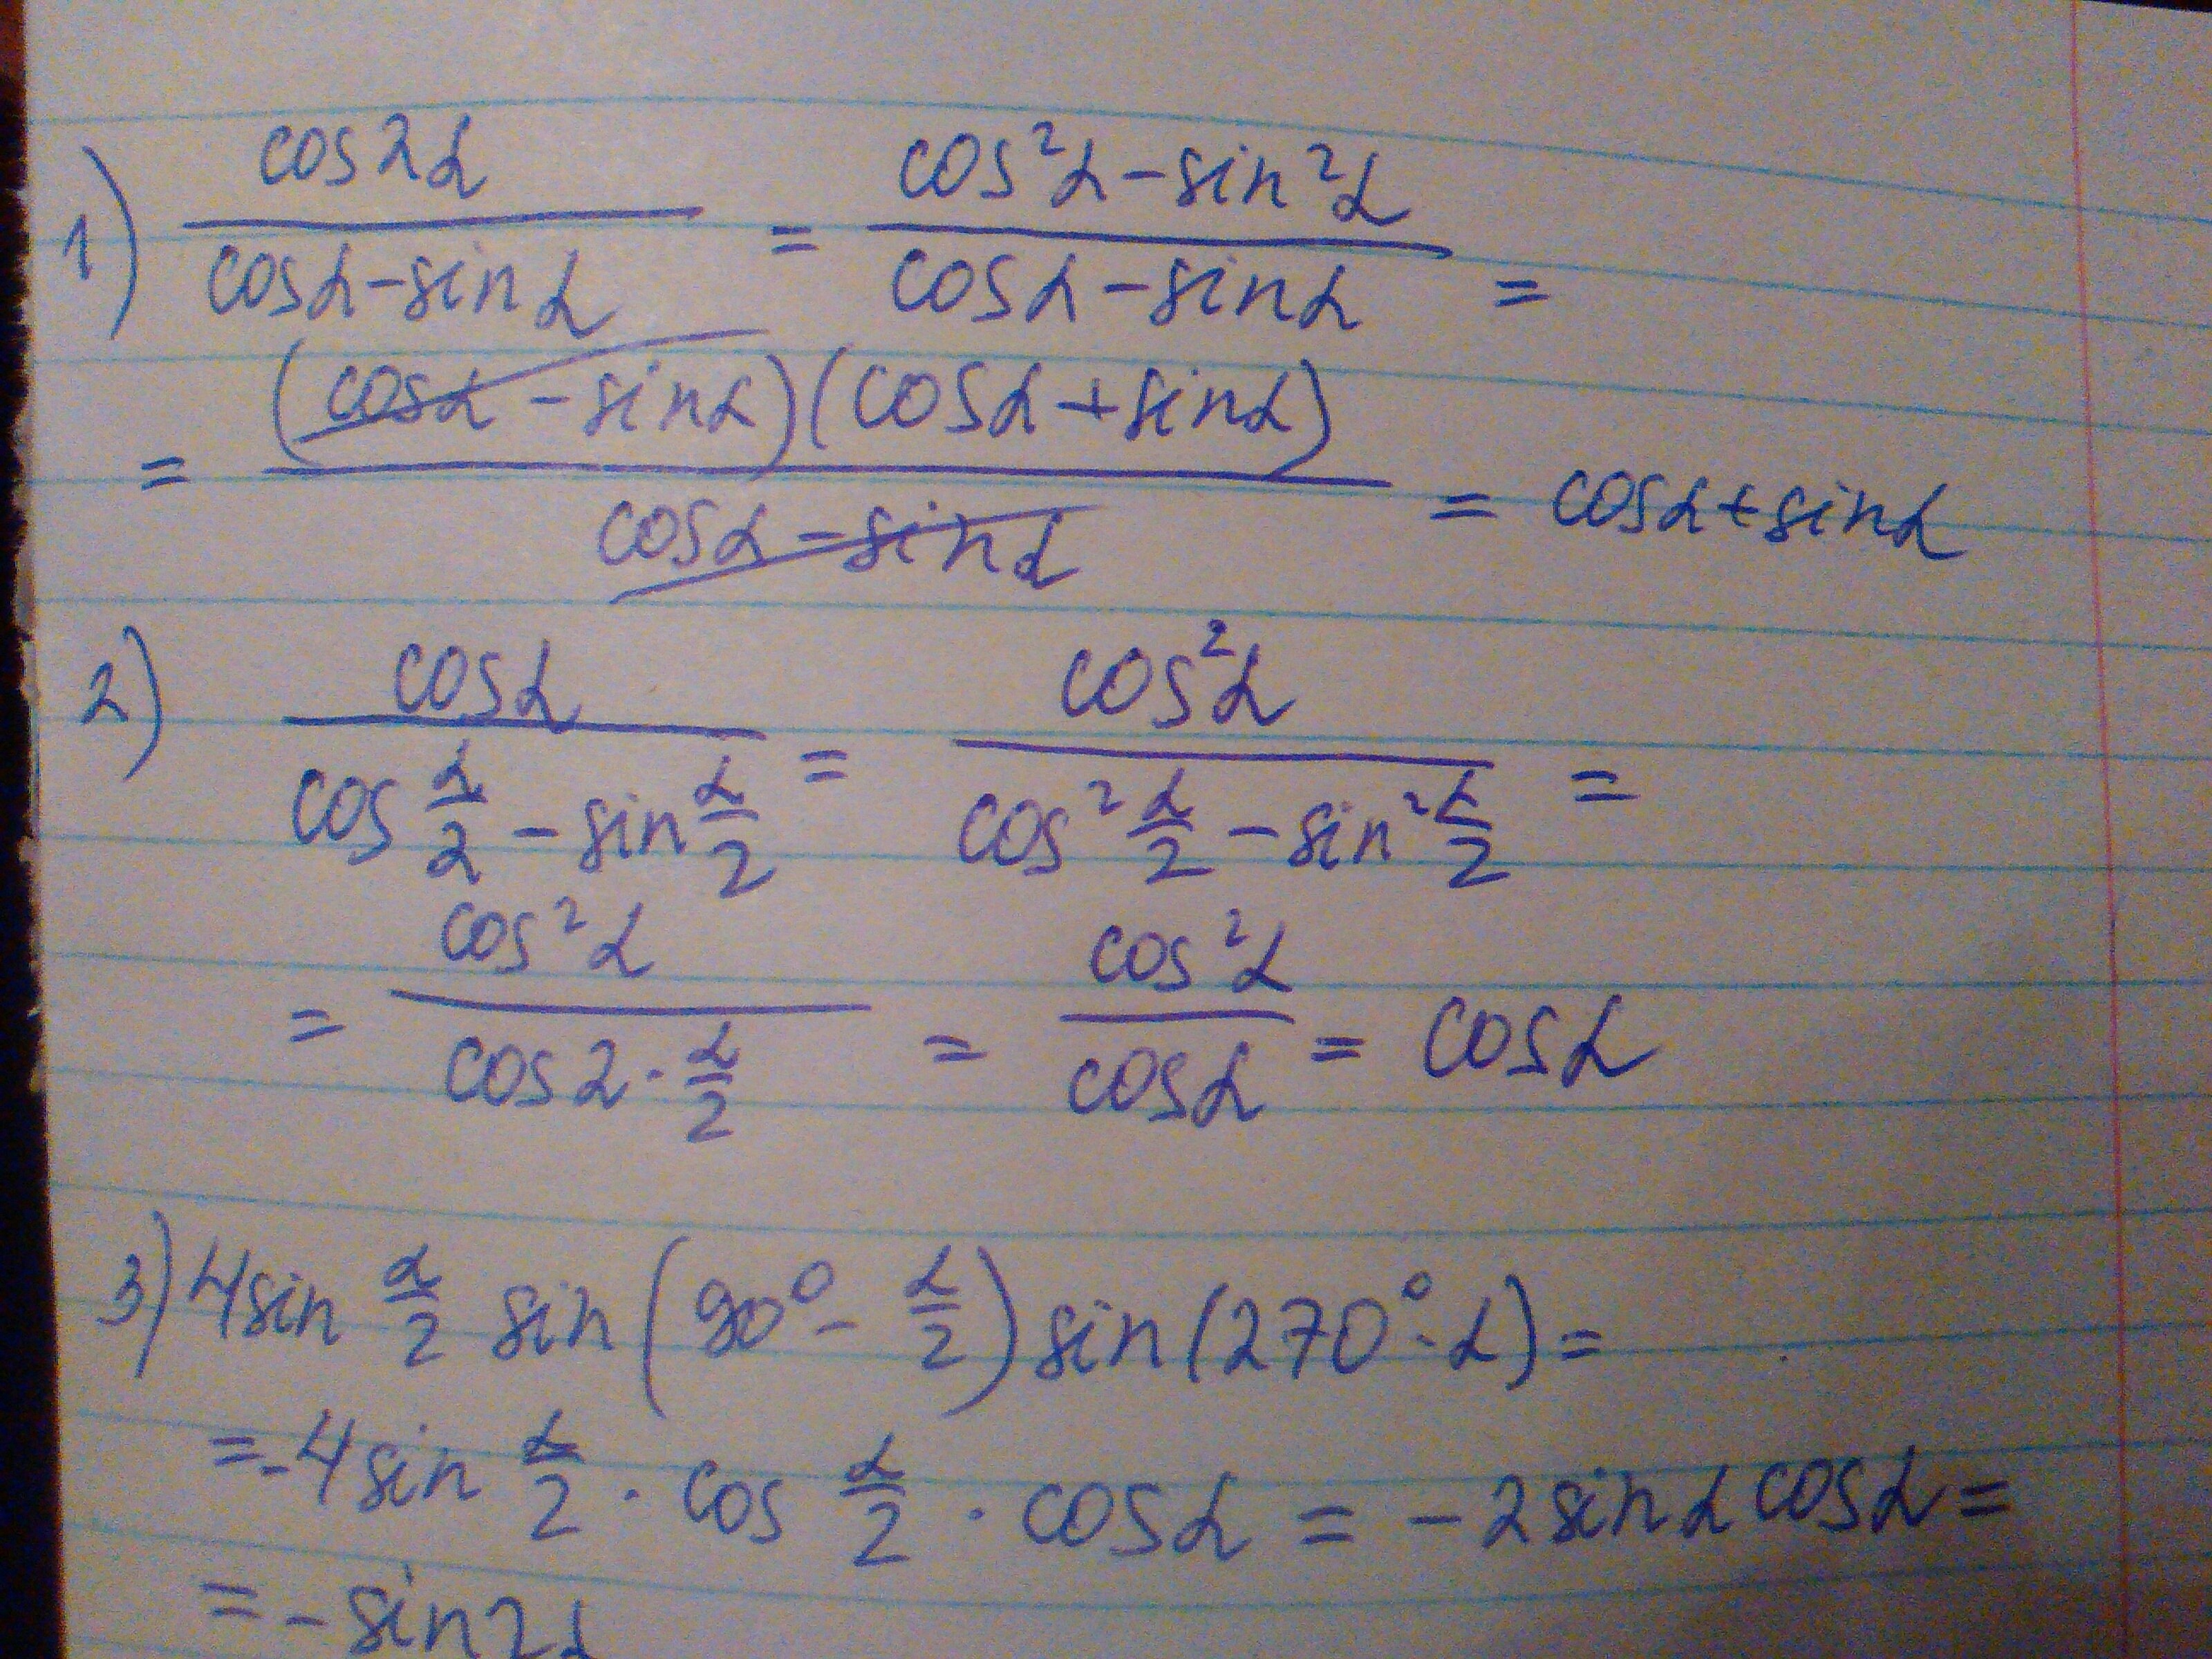 1) cos2α / (cosα-sinα) = (cos²α-sin²α) / (cosα-sinα) =
= (cosα-sinα)(cosα+sinα) / (cosα-sinα) = cosα+sinα
2) cosα / (cos α/2 - sin α/2) = cos²α / (cos² α/2 - sin² α/2) =
= cos²α / (cos2·α/2) = cos²α / cosα = cosα
3) 4sin α/2 sin(90°- α/2) sin(270°-α)=
=-4sin α/2 · cos α/2 · cosα = -2sinα cosα=
=-sin2α